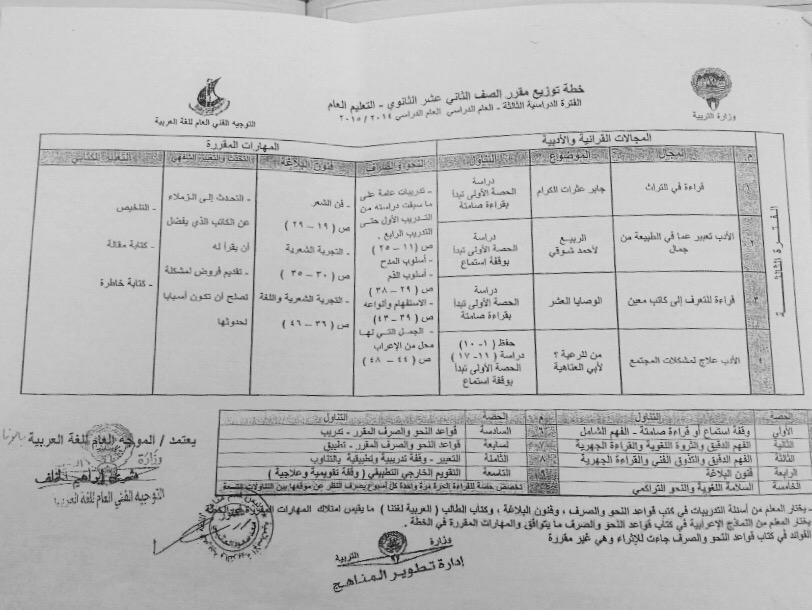 خطة توزيع مقرر الصف الثاني عشر الثانوي - التعليم العام
الفترة الدراسية الثالثة - العام الدراسي العام الدراسي ٢٠١٤ / ٢٠١٥
وزارة التربية
التوجيه الفني العام للغة العربية
المجالات القرائية والأدبية
المهارات المقررة
م
المجال
الموضوع
التناول
النحو والصرف
فنون البلاغة
التحدث والتعبير الشفهي
التعبير الكتابي
الفترة الثالثة
١
قراءة في التراث
جابر عثرات الكرام
دراسة
الحصة الأولى تبدأ
بقراءة صامتة
٢
الأدب تعبير عما في الطبيعة من
جمال
الربيع
لأحمد شوقي
دراسة
الحصة الأولى تبدأ
بوقفة استماع
٣
قراءة للتعرف إلى كاتب معين
الوصايا العشر
دراسة
الحصة الأولى تبدأ
بقراءة صامتة
٤
الأدب علاج لمشكلات المجتمع
من للرعية ؟
لأبي العتاهية
حفظ ( ١- ١٠ )
دراسة ( ١١- ١٧ )
الحصة الأولى تبدأ
بوقفة استماع
- تدريبات عامة على
ما سبقت دراسته من
التدريب الأول حتى
التدريب الرابع .
ص ( ١١ – ٢٥ )
- أسلوب المدح
- أسلوب الذم
ص ( ٢٩ – ٣٨ )
- الاستفهام وأنواعه
ص ( ٣٩ – ٤٣ )
- الجمل التي لها
محل من الإعراب
ص ( ٤٤ – ٤٨ )
- فن الشعر
ص ( ١٩ – ٢٩ )
- التجربة الشعرية
ص ( ٣٠ – ٣٥ )
- التجربة الشعرية واللغة
ص ( ٣٦ – ٤٦ )
- التحدث إلى الزملاء
عن الكاتب الذي يفضل
أن يقرأ له
- تقديم فروض لمشكلة
تصلح أن تكون أسبابا
لحدوثها
- التلخيص
- كتابة مقالة
- كتابة خاطرة
الحصة
التناول
م
الحصة
التناول
الأولى
وقفة استماع أو قراءة صامتة - الفهم الشامل
٦
السادسة
قواعد النحو والصرف المقرر - تدريب
الثانية
الفهم الدقيق والثروة اللغوية والقراءة الجهرية
٧
السابعة
قواعد النحو والصرف المقرر - تطبيق
الثالثة
الفهم الدقيق والتذوق الفني والقراءة الجهرية
٨
الثامنة
التعبير - وقفة تدريبية وتطبيقية بالتناوب
الرابعة
فنون البلاغة
التاسعة
التقويم الخارجي التطبيقي ( وقفة تقويمية وعلاجية )
الخامسة
السلامة اللغوية والنحو التراكمي
تخصص حصة للقراءة الحرة مرة واحدة كل أسبوع بصرف النظر عن موقعها بين التناولات التسعة
يعتمد / الموجه العام للغة العربية
وزارة
التوجيه الفني العام للغة العربية
- يختار المعلم من أسئلة التدريبات في كتب قواعد النحو والصرف ، وفنون البلاغة ، وكتاب الطالب ( العربية لغتنا ) ما يقيس امتلاك المهارات المقررة في الخطة
يختار المعلم من النماذج الإعرابية في كتاب قواعد النحو والصرف ما يتوافق والمهارات المقررة في الخطة .
الفوائد في كتاب قواعد النحو والصرف جاءت للإثراء وهي غير مقررة
وزارة
التربية
إدارة تطوير المناهج